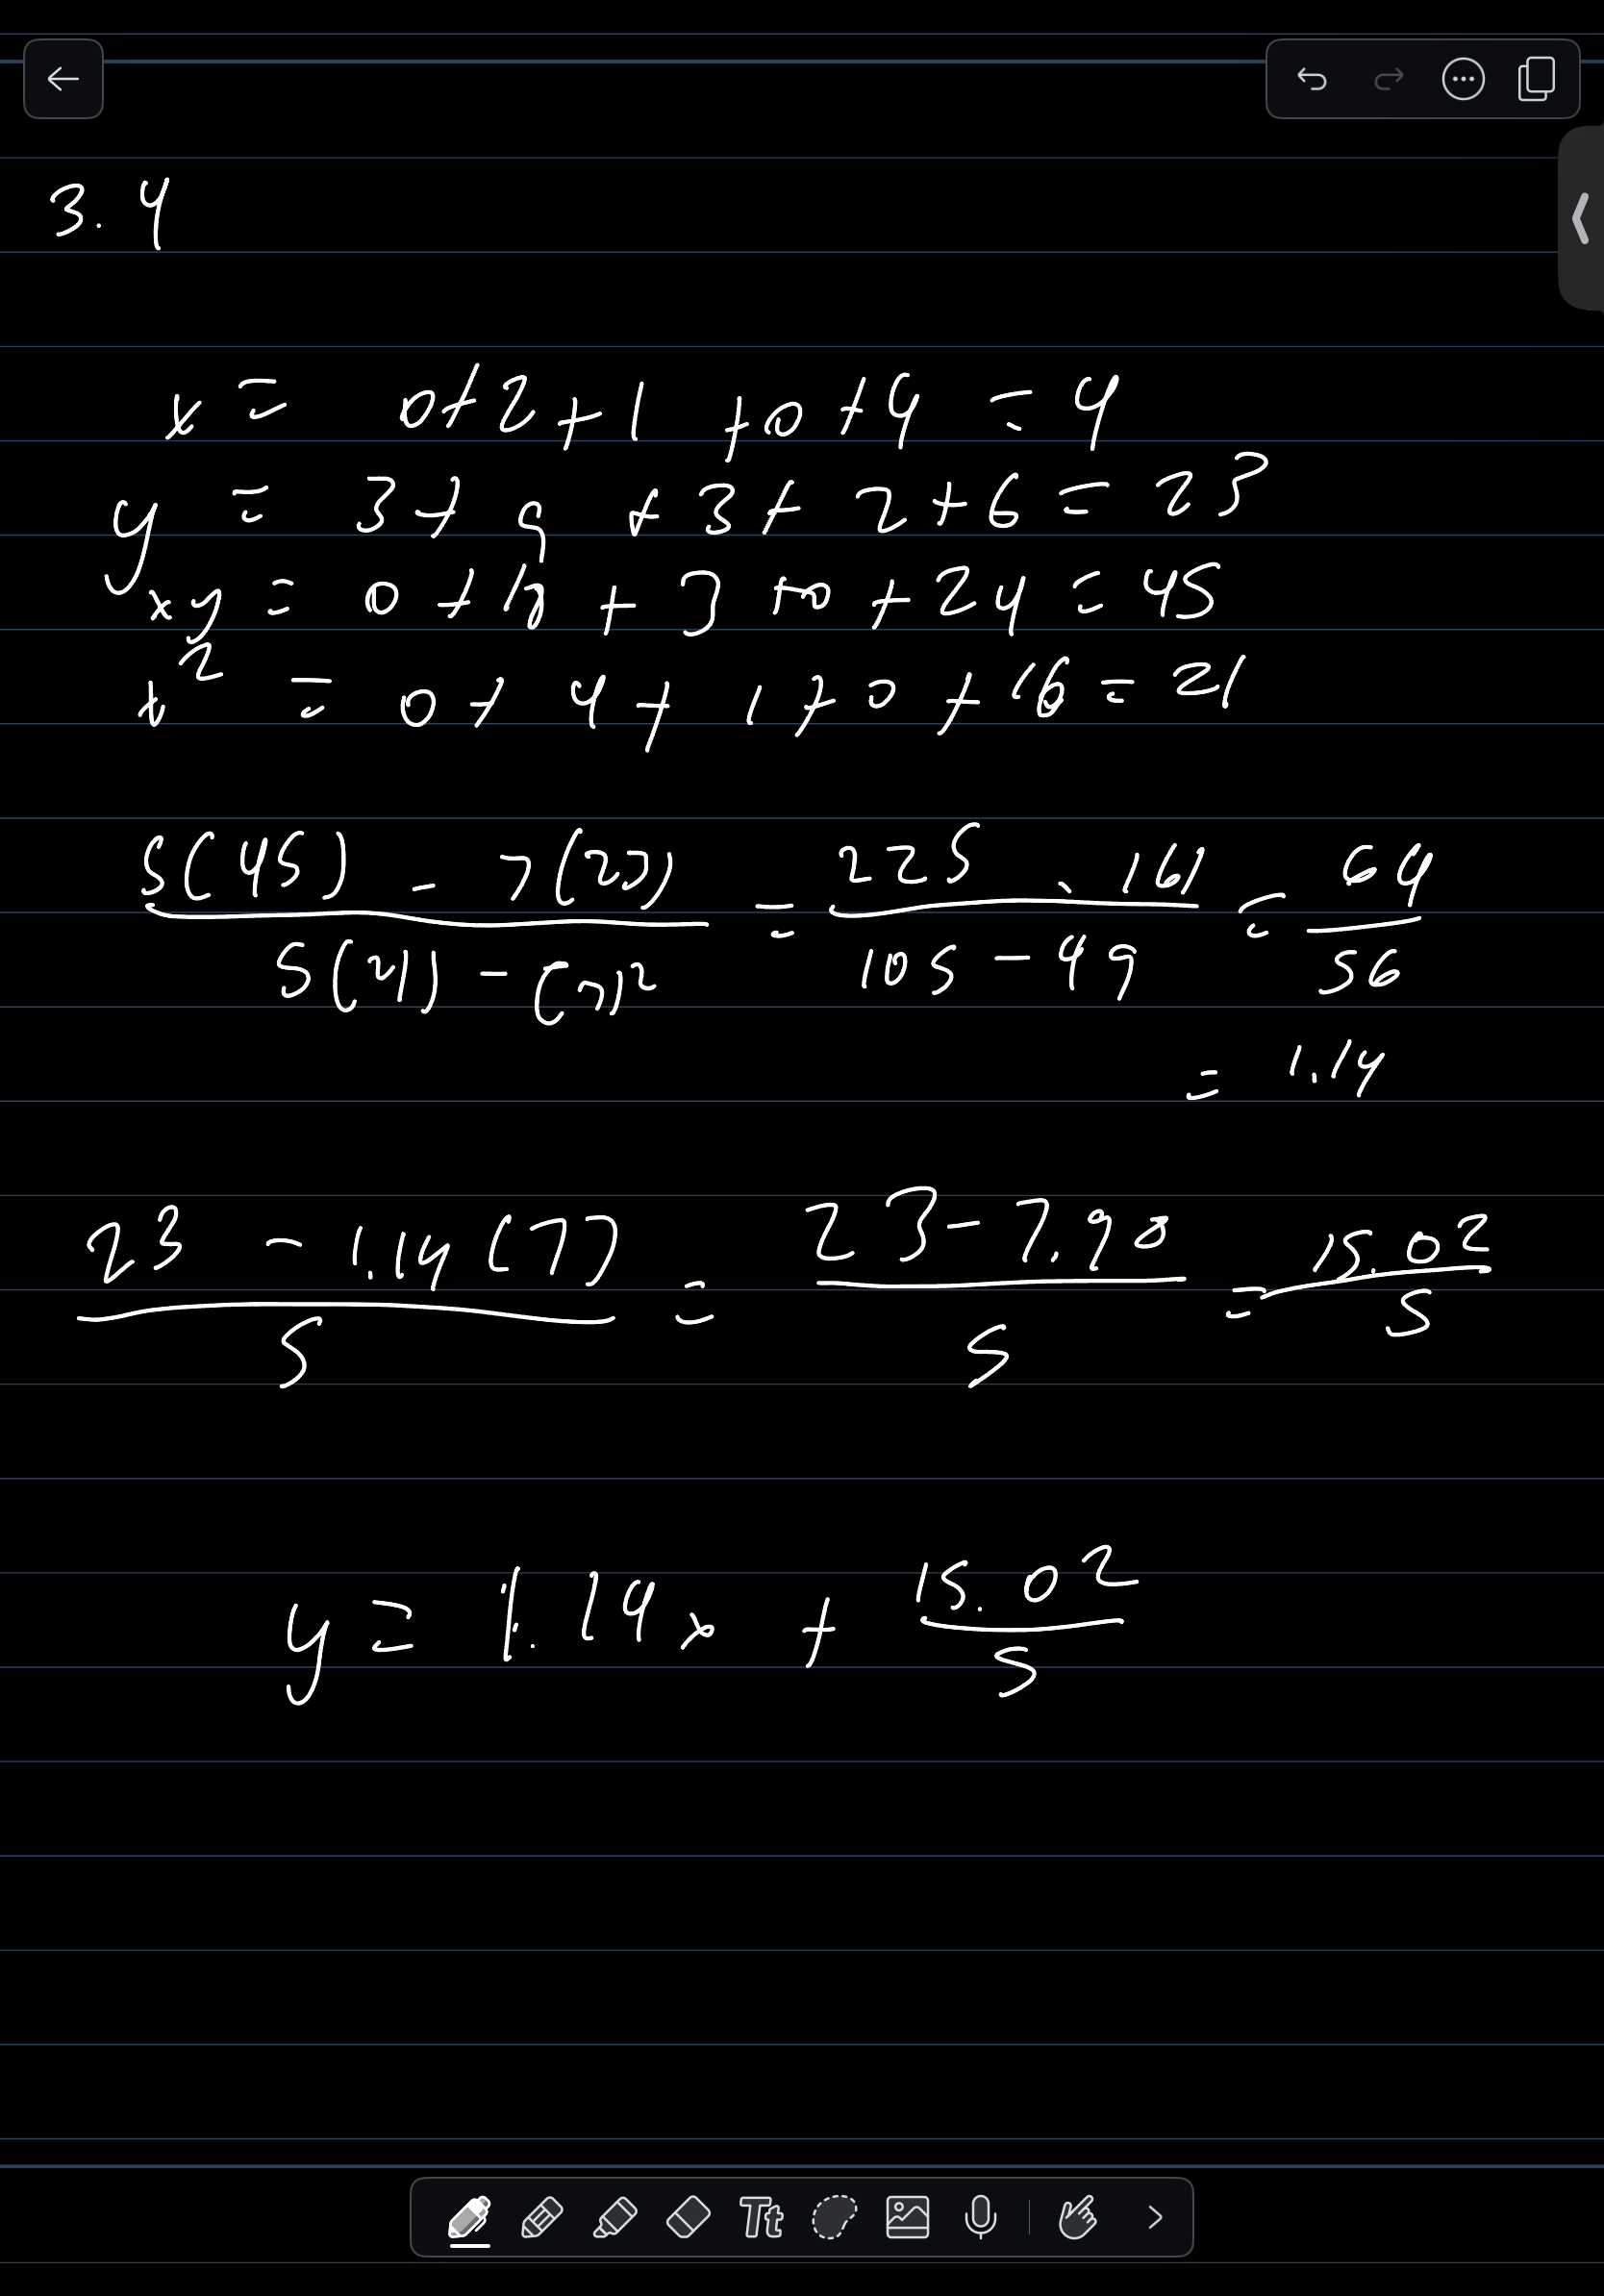 3. 4
x = 0+2+1 +0+4 = 4
y = 3+ 9 +3+ 2+6 = 23
xy = 0 + 18 + 3 +0 + 24 = 45
x² = 0 + 4 + 1 + 0 + 16 = 21
5(45) - 7(23) / 5(21) - (7)² = 225 - 161 / 105 - 49 = 64 / 56
= 1.14
23 - 1.14(7) / 5 = 23 - 7.98 / 5 = 15.02 / 5
y = 1.14x + 15.02 / 5
Tt